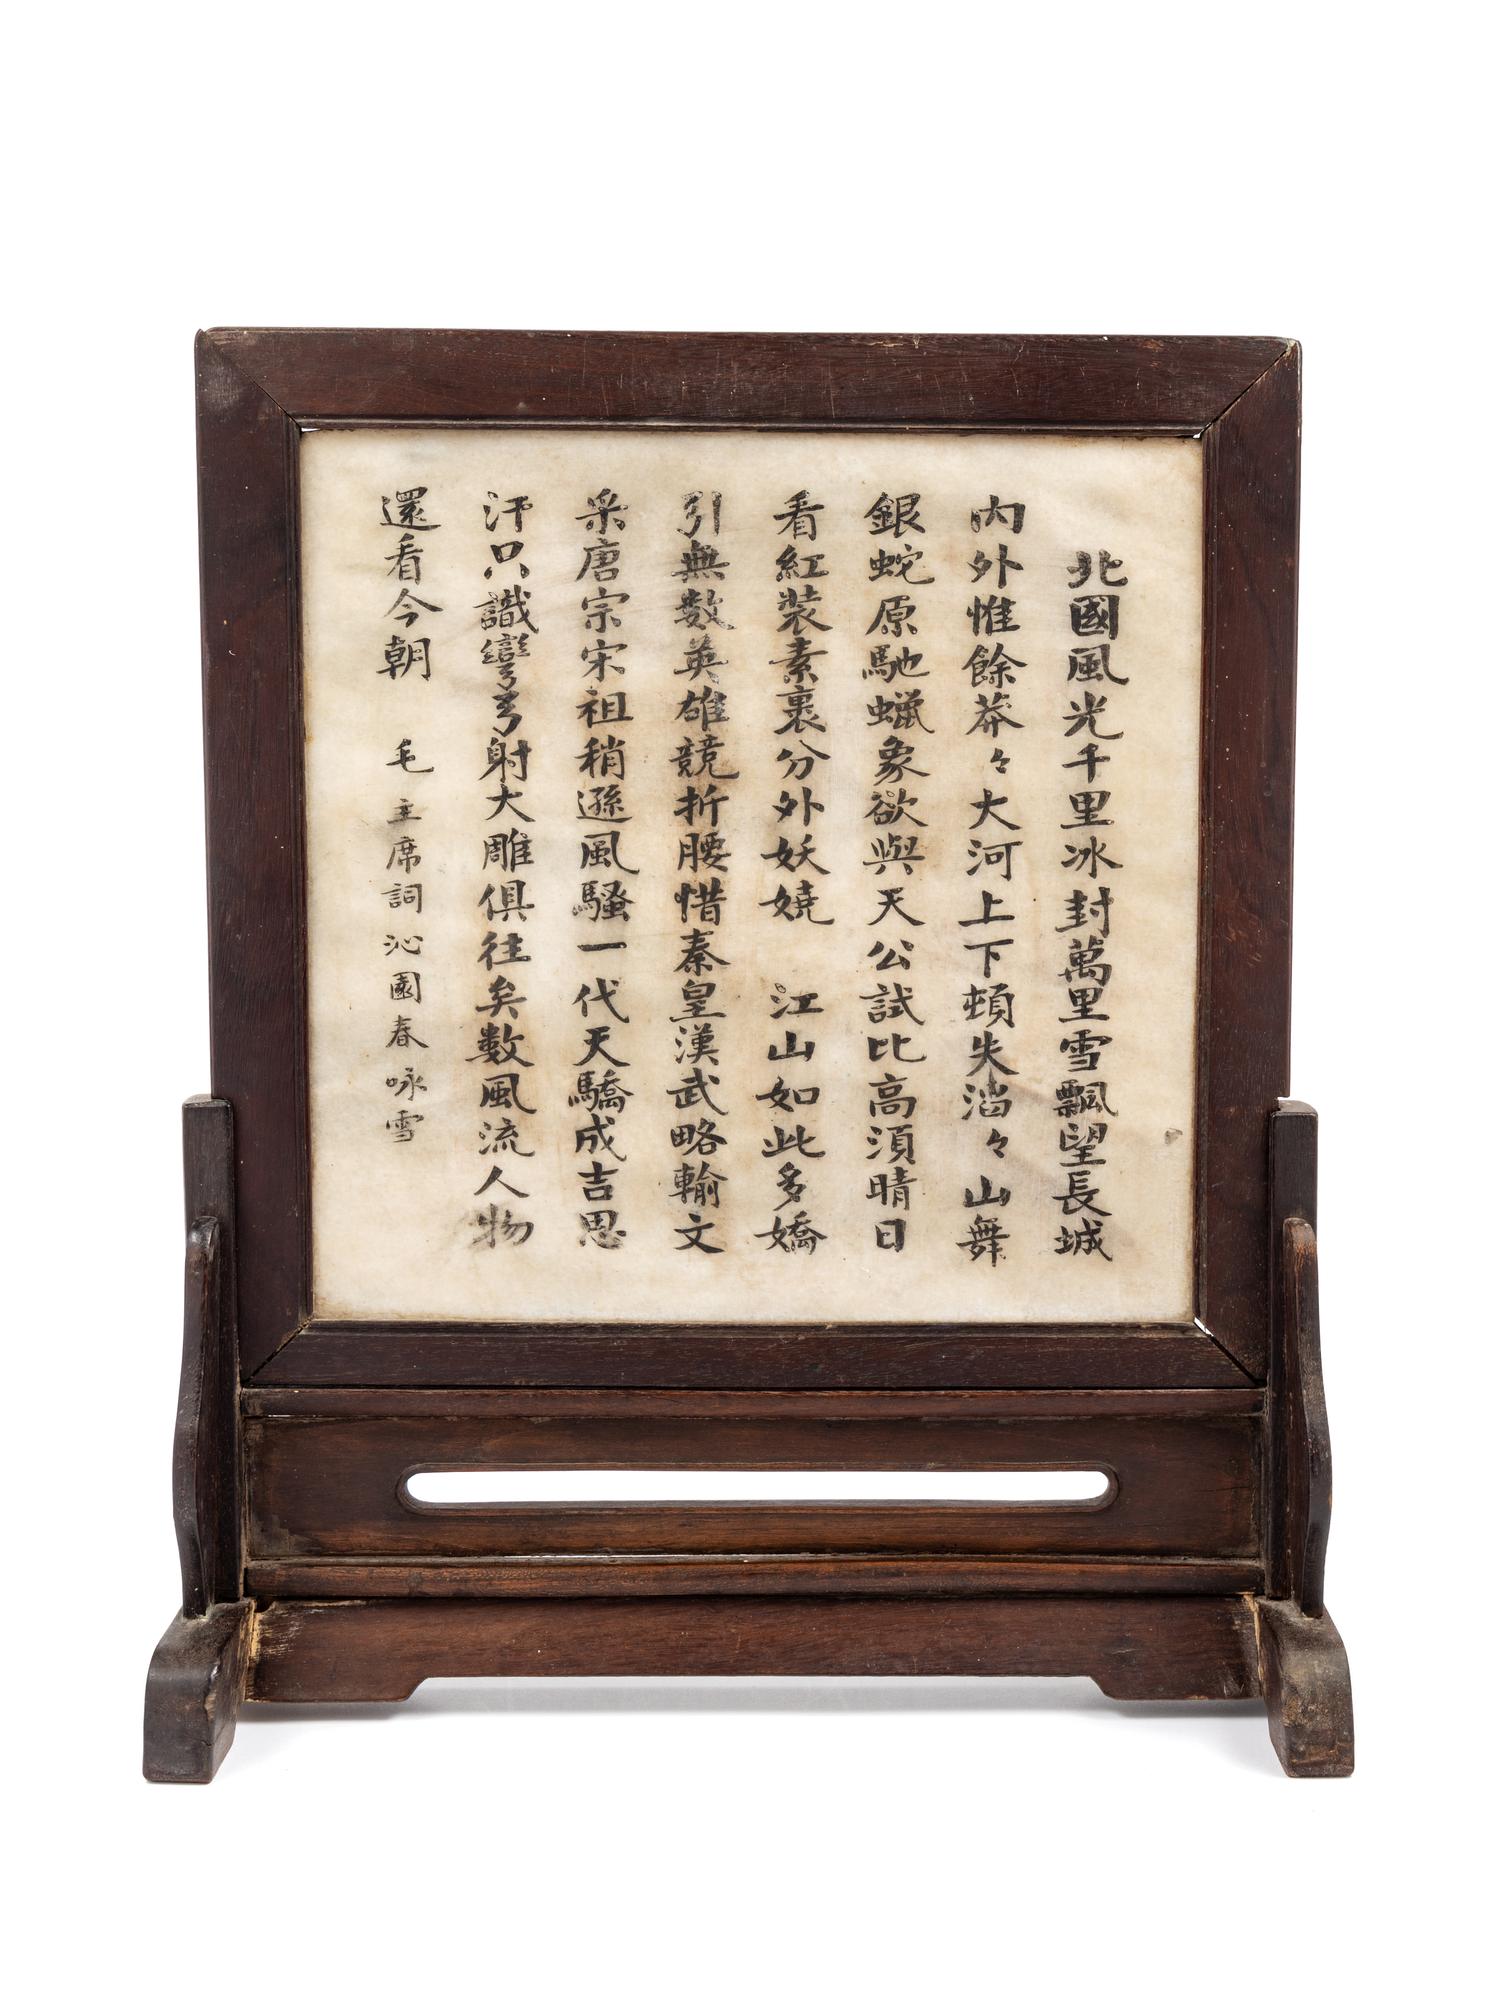 北國風光千里冰封萬里雪飄望長城
内外惟餘莽々大河上下頓失滔々山舞
銀蛇原馳蠟象欲與天公試比高須晴日
看紅裝素裹分外妖嬈　江山如此多嬌
引無數英雄競折腰惜秦皇漢武略輸文
采唐宗宋祖稍遜風騷一代天驕成吉思
汗只識彎弓射大雕俱往矣數風流人物
還看今朝　毛主席詞沁園春咏雪